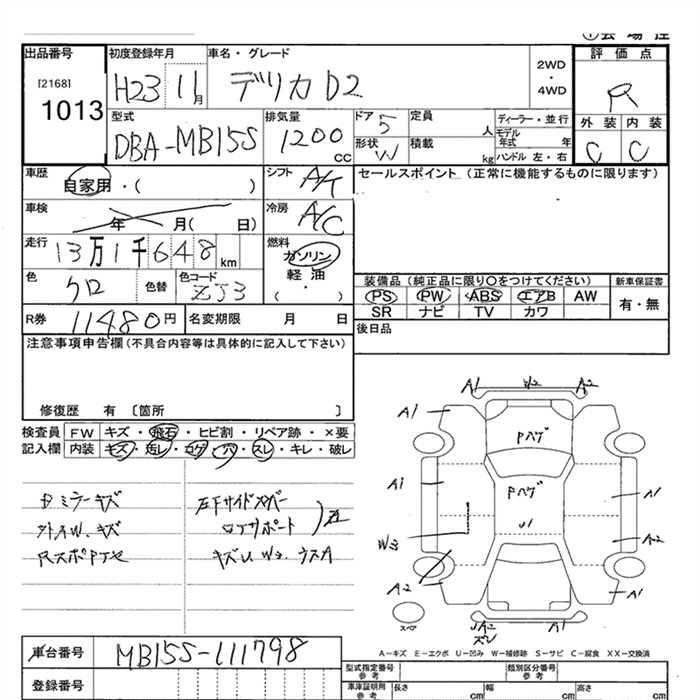 出品番号 初度登録年月 車名・グレード
[2168]
1013
H23 11月 デリカD2
2WD
・
4WD
評価点
R
外装 内装
C C
型式 排気量 ドア 定員 ディーラー・並行
DBA-MB15S 1200cc 5 人
モデル年式 年
形状 積載 ハンドル 左・右
W kg
車歴 シフト セールスポイント (正常に機能するものに限ります)
自家用・( ) A/T
車検 冷房
年 月( 日) A/C
走行 燃料
13万1千648km ガソリン
軽・油
( )
色 色替 色コード
クロ ZJ3
装備品 (純正品に限り〇をつけてください) 新車保証書
PS PW ABS エアB AW 有・無
SR ナビ TV カワ
R券 11480円 名変期限 月 日
後日品
注意事項申告欄(不具合内容等は具体的に記入して下さい)
修復歴 有 〔箇所 〕
検査員 FW キズ・飛石・ヒビ割・リペア跡・×要
記入欄 内装 キズ・汚レ・コゲ・穴・スレ・キレ・破レ
ミラーキズ
キズ
左Fサイドメンバー
コアサポート
キズU W3
A1 W2 A2
A1
Pハゲ
A1
Pハゲ
A1
U1
W3
A2
A2
A1
スペア
A2 A1
A-キズ E-エクボ U-凹み W-補修跡 S-サビ C-腐食 XX-交換済
車台番号 MB15S-111798
登録番号
型式指定番号 参考 類別区分番号 参考
車庫証明用 参考 長さ cm 幅 cm 高さ cm